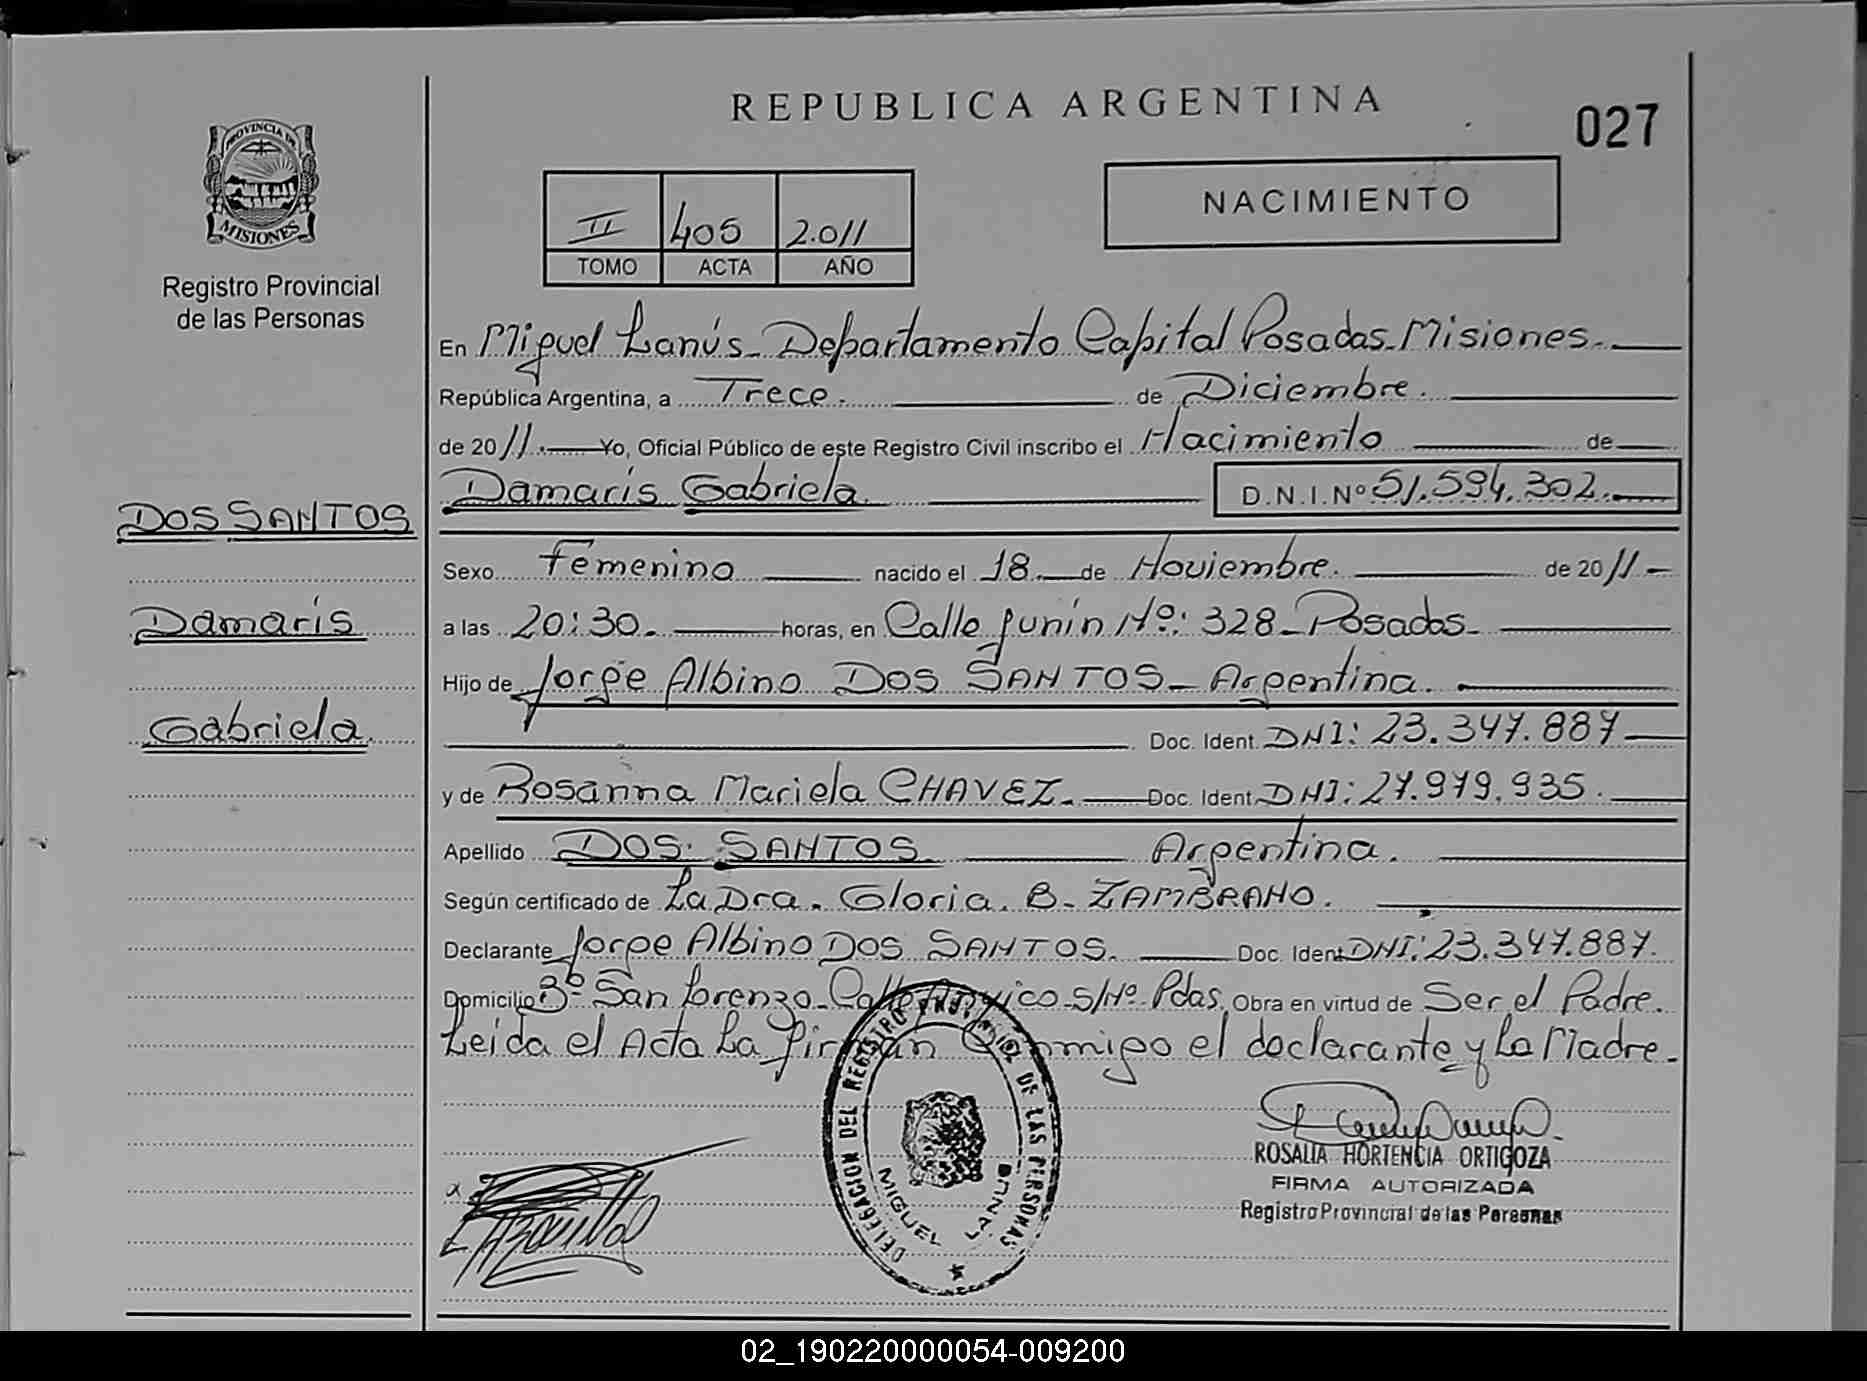 REPUBLICA ARGENTINA
027
PROVINCIA DE
MISIONES
Registro Provincial
de las Personas
II 405 2.011
TOMO ACTA AÑO
NACIMIENTO
En Miguel Lanús - Departamento Capital Posadas - Misiones.
República Argentina, a Trece. de Diciembre.
de 2011. Yo, Oficial Público de este Registro Civil inscribo el Nacimiento de
Damaris Gabriela D.N.I.Nº 51.594.302.
DOS SANTOS
Damaris
Gabriela
Sexo Femenino nacido el 18. de Noviembre. de 2011 -
a las 20:30. horas, en Calle Junín Nº: 328 - Posadas -
Hijo de Jorge Albino DOS SANTOS - Argentina.
Doc. Ident. DNI: 23.347.887
y de Rosanna Mariela CHAVEZ. Doc. Ident. DNI: 27.979.935.
Apellido DOS SANTOS Argentina.
Según certificado de La Dra. Gloria. B. ZAMBRANO.
Declarante Jorge Albino DOS SANTOS. Doc. Ident. DNI: 23.347.887.
Domicilio Bº San Lorenzo - Calle S/Nº Pdas. Obra en virtud de Ser el Padre.
Leida el Acta La firman Conmigo el declarante y La Madre -
DELEGACION DEL REGISTRO PROVINCIAL DE LAS PERSONAS
MIGUEL LANUS
ROSALIA HORTENCIA ORTIGOZA
FIRMA AUTORIZADA
Registro Provincial de las Personas
02_190220000054-009200